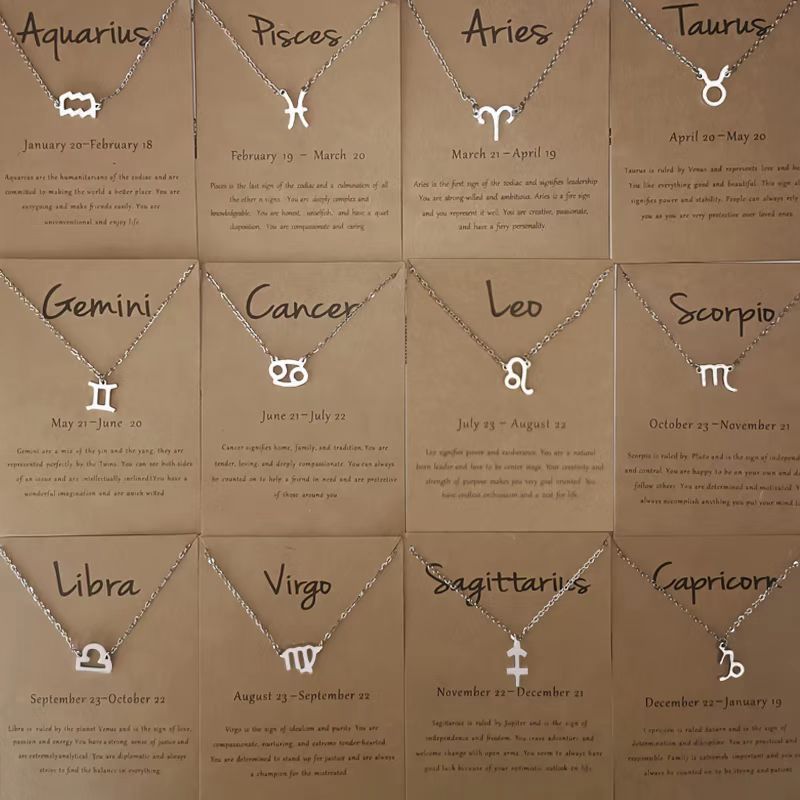 Aquarius
January 20–February 18
Aquarius are the humanitarians of the zodiac and are
committed to making the world a better place. You are
easygoing and make friends easily. You are
unconventional and enjoy life.
Pisces
February 19 – March 20
Pisces is the last sign of the zodiac and a culmination of all
the other n signs. You are deeply complex and
knowledgable. You are honest, unselfish, and have a quiet
disposition. You are compassionate and caring
Aries
March 21–April 19
Aries is the first sign of the zodiac and signifies leadership
You are strong-willed and ambitious. Aries is a fire sign
and you represent it well. You are creative, passionate,
and have a fiery personality.
Taurus
April 20–May 20
Taurus is ruled by Venus and represents love and
You like everything good and beautiful. This sign al
signifies power and stability. People can always rely
you as you are very protective over loved ones.
Gemini
May 21–June 20
Gemini are a mix of the yin and the yang, they are
represented perfectly by the Twins. You can see both sides
of an issue and are intellectually inclined.You have a
wonderful imagination and are quick witted
Cancer
June 21–July 22
Cancer signifies home, family, and tradition. You are
tender, loving, and deeply compassionate. You can always
be counted on to help a friend in need and are protective
of those around you
Leo
July 23 – August 22
Leo signifies power and exuberance. You are a natural
born leader and love to be center stage. Your creativity and
strength of purpose makes you very goal oriented. You
have endless enthusiasm and a zest for life.
Scorpio
October 23–November 21
Scorpio is ruled by Pluto and is the sign of independ
and control. You are happy to be on your own and d
follow others. You are determined and motivated. Y
always accomplish anything you put your mind
Libra
September 23–October 22
Libra is ruled by the planet Venus and is the sign of love,
passion and energy You have a strong sense of justice and
are extremelyanalytical. You are diplomatic and always
strive to find the balance in everything.
Virgo
August 23–September 22
Virgo is the sign of idealism and purity. You are
compassionate, nurturing, and extreme tender-hearted.
You are determined to stand up for justice and are always
a champion for the mistreated.
Sagittarius
November 22–December 21
Sagittarius is ruled by Jupiter and is the sign of
independence and freedom. You crave adventure and
welcome change with open arms. You seem to always have
good luck because of your optimistic outlook on life.
Capricorn
December 22–January 19
Capricorn is ruled Saturn and is the sign of
determination and discipline. You are practical and
responsible. Family is extremely important and you
always be counted on to be strong and patient.